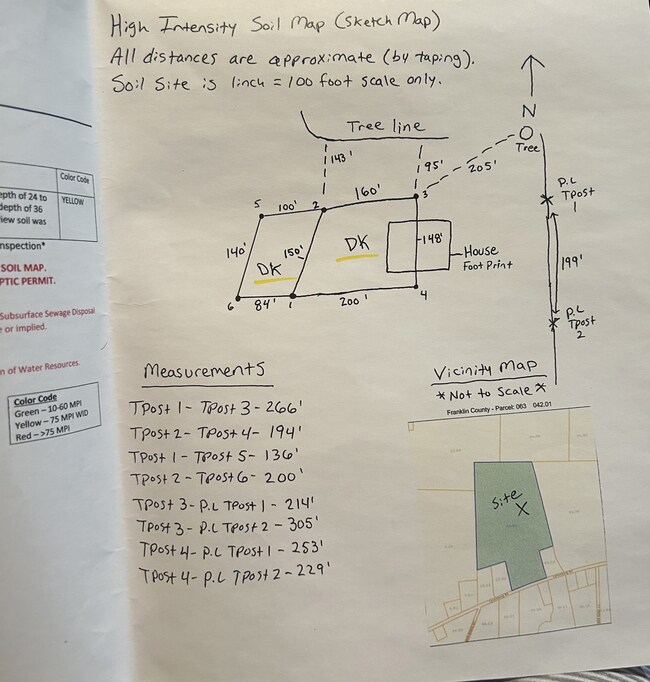 High Intensity Soil Map (Sketch Map)
All distances are approximate (by taping).
Soil Site is 1inch = 100 foot scale only.
N
Tree
Tree line
143'
95'
205'
P.L
TPost
1
5
100'
2
160'
3
140'
150'
DK
DK
148'
House
Foot Print
199'
6
84'
1
200'
4
P.L
TPost
2
Color Code
epth of 24 to
depth of 36
iew soil was
YELLOW
nspection*
SOIL MAP.
PTIC PERMIT.
Subsurface Sewage Disposal
e or implied.
n of Water Resources.
Color Code
Green – 10-60 MPI
Yellow – 75 MPI WID
Red – >75 MPI
Measurements
TPost 1 - TPost 3 - 266'
TPost 2 - TPost 4 - 194'
TPost 1 - TPost 5 - 136'
TPost 2 - TPost 6 - 200'
TPost 3 - P.L TPost 1 - 214'
TPost 3 - P.L TPost 2 - 305'
TPost 4 - P.L TPost 1 - 253'
TPost 4 - P.L TPost 2 - 229'
Vicinity Map
* Not to Scale *
Franklin County - Parcel: 063 042.01
Site
X